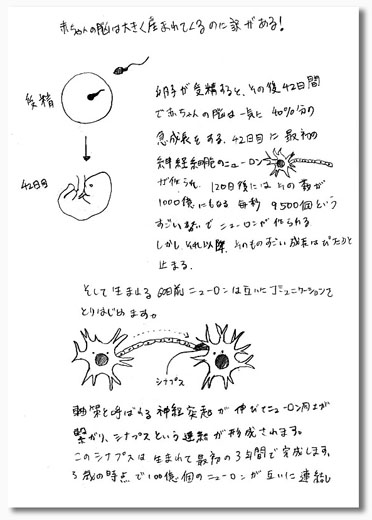 赤ちゃんの脳は大きく産まれてくるのに訳がある!
受精
42日目
卵子が受精すると、その後42日間
で赤ちゃんの脳は一気に40%分の
急成長をする。42日目に最初の
神経細胞のニューロン
が作られ 120日後にはその数が
1000億にもなる 毎秒 9500個という
すごい勢いで ニューロンが作られる
しかし それ以降、そのものすごい成長はぴたりと
止まる。
そして生まれる60日前 ニューロンは互いにコミュニケーションを
とりはじめます。
シナプス
軸索と呼ばれる神経突起が伸びてニューロン同士が
繋がり、シナプスという連結が形成されます。
このシナプスは生まれて最初の3年間で完成します。
3歳の時点で100億個のニューロンが互いに連結し